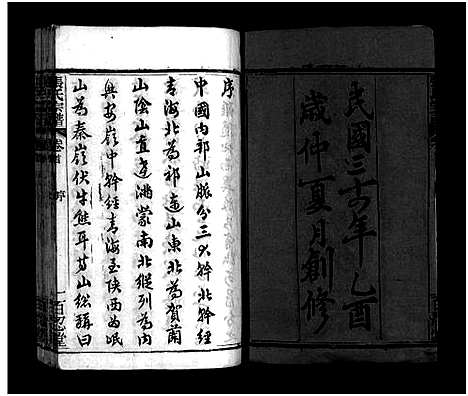 民國三十四年乙酉
歲仲夏月創修
序
中國內部山脈分三大幹北幹經
青海北為祁連山東北為賀蘭
山陰山直達滿蒙南北縱列為內
興安嶺中幹經青海至陝西為岷
山為秦嶺伏牛熊耳等山總稱曰
張氏宗譜 卷首 序 一 百忍堂